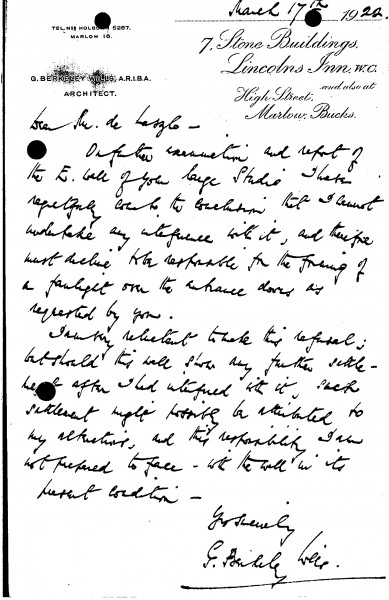 March 17th 1922
TEL. Nos HOLBORN 5287.
MARLOW 16.
7, Stone Buildings,
Lincolns Inn, W.C.
and also at
High Street,
Marlow, Bucks.
G. BERKELEY WILLS, A.R.I.B.A.
ARCHITECT.
Dear Mr. de Laszlo -
On further examination and report of
the E. wall of your large Studio I have
regretfully come to the conclusion that I cannot
undertake any interference with it, and therefore
must decline to be responsible for the forming of
a fanlight over the entrance doors as
requested by you.
I am very reluctant to make this refusal;
but should this wall show any further settle-
ment after I had interfered with it, such
settlement might possibly be attributed to
my alterations, and this responsibility I am
not prepared to face - with the wall in its
present condition -
Yrs sincerely
G. Berkeley Wills.